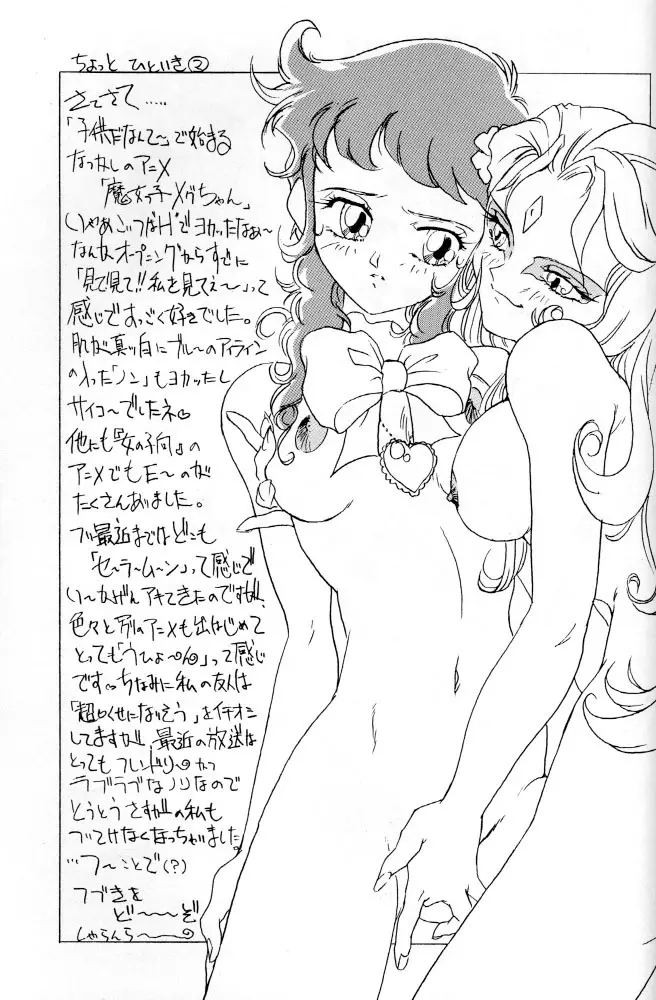 ちょっと ひといき②
さてさて.....
「子供だなんて〜」で始まる
なつかしのアニメ
「魔女っ子メグちゃん」
いやぁこいつはHでヨカッたなぁ〜
なんせオープニングからすでに
「見て見て!!私を見てぇ〜」って
感じですっごく好きでした。
肌が真ッ白にブルーのアイライン
の入った「ノン」もヨカッたし
サイコ〜でしたネ♡
他にも『女の子向』の
アニメでもE〜のが
たくさんありました。
最近まではどこも
「セ〜ラ〜ム〜ン」って感じで
い〜かげんアキてきたのですが、
色々と別のアニメも出はじめて
とっても「うひょ〜」って感じ
です♡ちなみに私の友人は
「超くせになりそう」をイチオシ
してますが、最近の放送は
とっても かつ
ラブラブなノリなので
とうとうさすがの私も
なくなっちゃいました。
…つ〜ことで(?)
つづきを
ど〜〜〜ぞ
しゃらんら〜〜